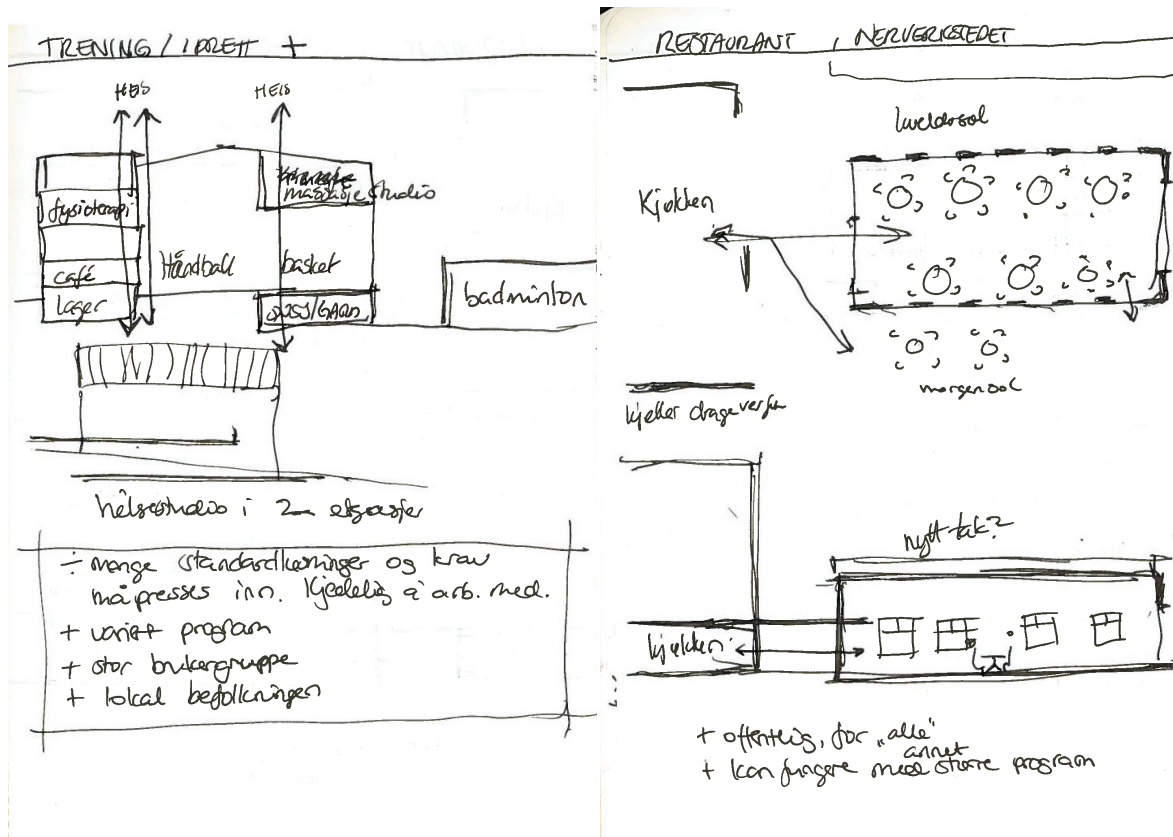 TRENING / IDRETT +
HEIS
HEIS
massasje studio
fysioterapi
Håndball
basket
café
lager
badminton
helsestudio i 2 etasjer
÷ mange standardløsninger og krav
må presses inn. Kjedelig å arb. med.
+ variert program
+ stor brukergruppe
+ lokal befolkningen
RESTAURANT , NERVERKSTEDET
kveldssol
Kjøkken
morgensol
kjeller
nytt tak?
kjøkken
+ offentlig, for „alle"
annet
+ kan fungere med større program